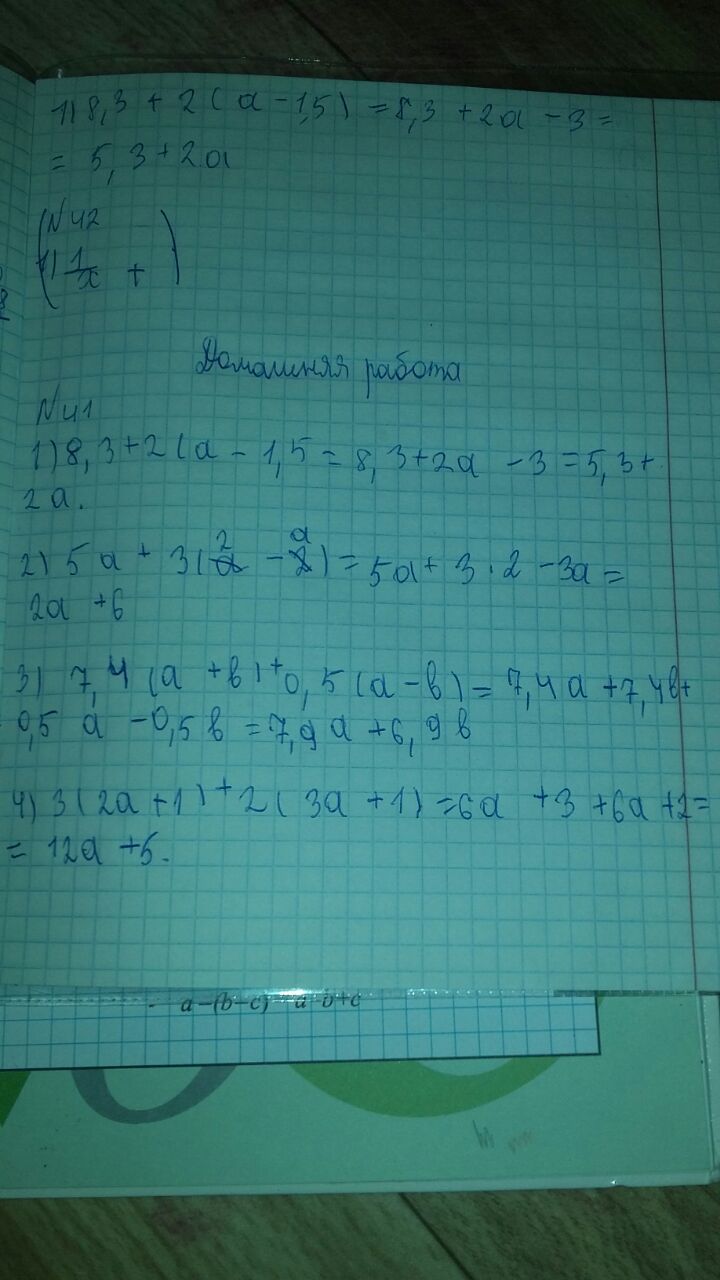 1) 8,3 + 2 ( a - 1,5 ) = 8,3 + 2a - 3 =
= 5,3 + 2a
N42
1) 1/x +
Домашняя работа
N41
1) 8,3 + 2 ( a - 1,5 = 8,3 + 2a - 3 = 5,3 +
2a.
2) 5a + 3 ( 2 - a ) = 5a + 3 · 2 - 3a =
2a + 6
3) 7,4 ( a + b ) + 0,5 ( a - b ) = 7,4a + 7,4b +
0,5 a - 0,5 b = 7,9 a + 6,9 b
4) 3 ( 2a + 1 ) + 2 ( 3a + 1 ) = 6a + 3 + 6a + 2 =
= 12a + 5.
a-(b-c) a-b+c